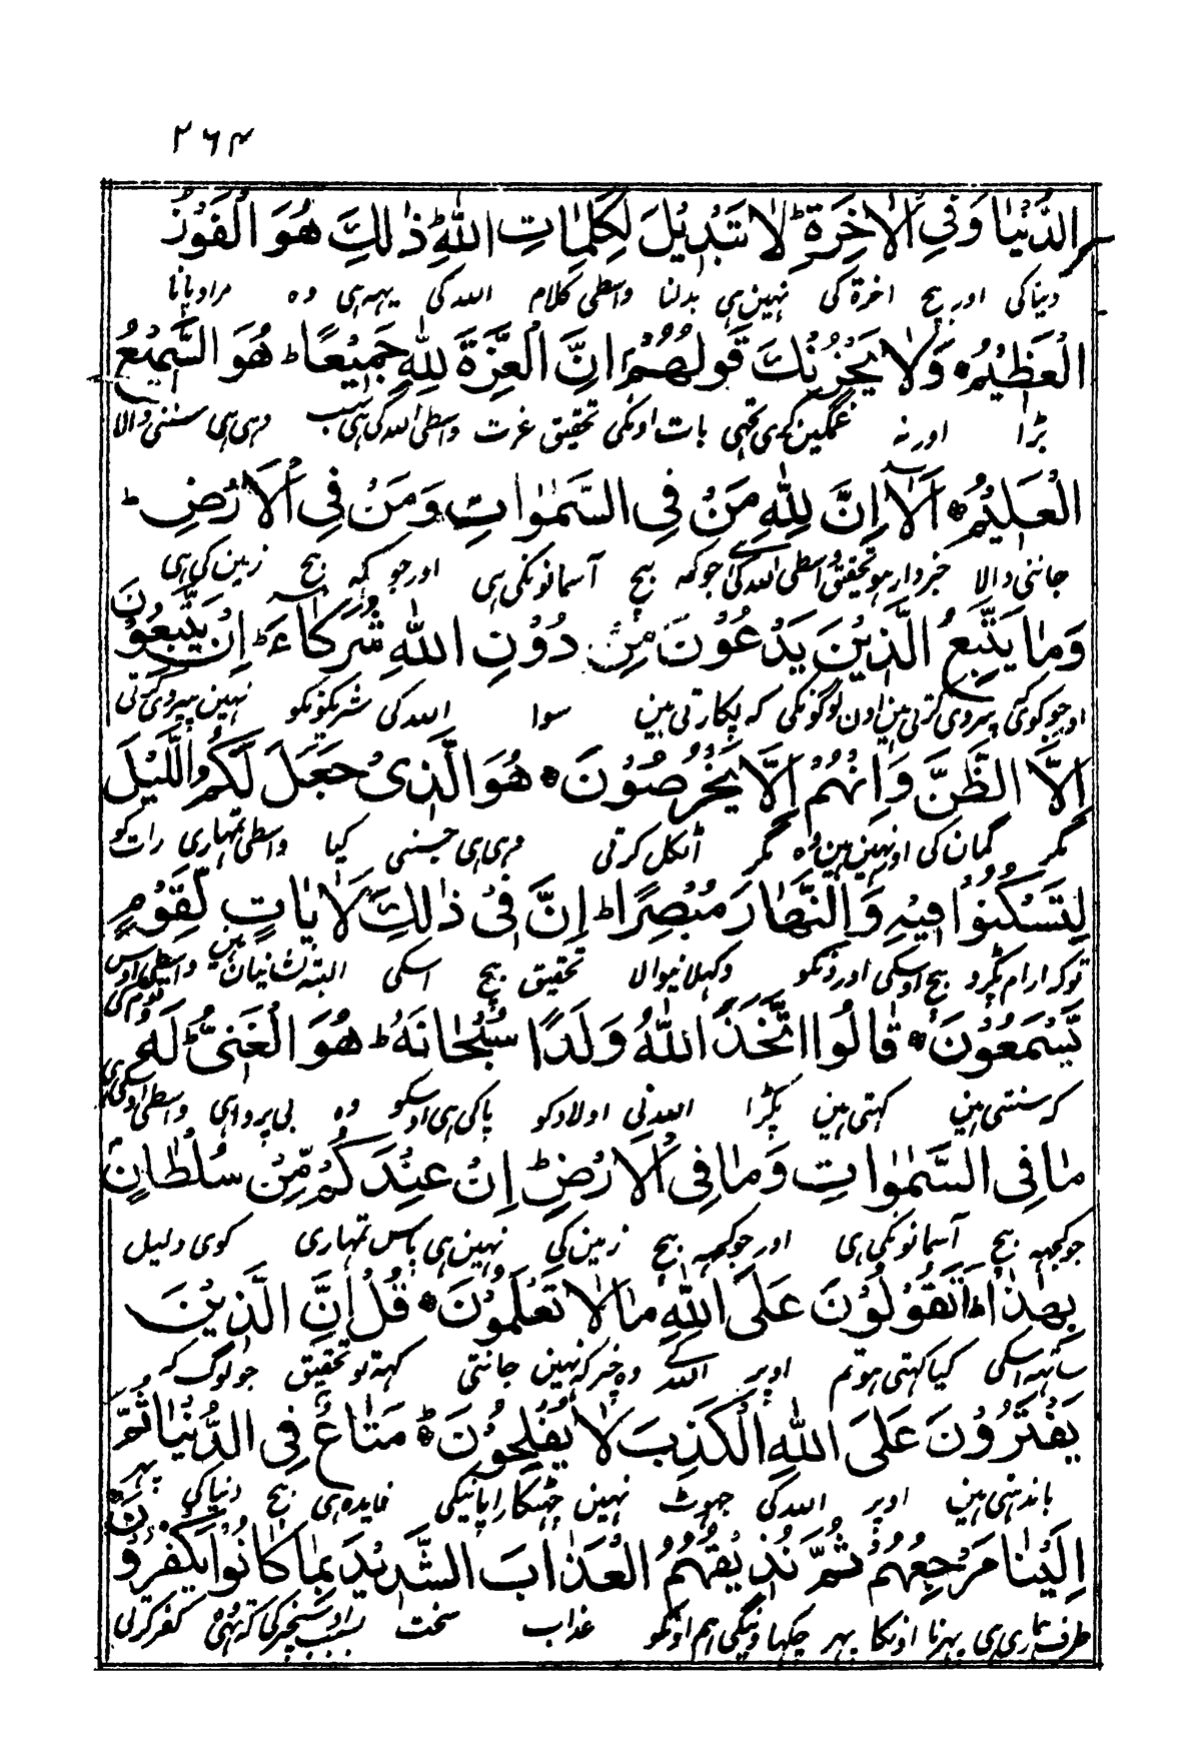 ۲۶۴
الدُّنْيَا وَفِي الْاٰخِرَةِ ؕ لَا تَبْدِيْلَ لِكَلِمَاتِ اللّٰهِ ؕ ذٰلِكَ هُوَ الْفَوْزُ
دنیا کی اور بیچ اخرۃ کی نہین ہی بدلنا واسطی کلام اللہ کی یہہ ہی وہ مراد پانا
الْعَظِيْمُ ۞ وَلَا يَحْزُنْكَ قَوْلُهُمْ ۘ اِنَّ الْعِزَّةَ لِلّٰهِ جَمِيْعًا ؕ هُوَ السَّمِيْعُ
بڑا اور نہ غمگین کری تجہی بات اونکی تحقیق عزت واسطی اللہ کی ہی سب وہی ہی سننی والا
الْعَلِيْمُ ۞ اَلَاۤ اِنَّ لِلّٰهِ مَنْ فِي السَّمٰوَاتِ وَمَنْ فِي الْاَرْضِ ؕ
جاننی والا خبردار ہو تحقیق واسطی اللہ کی جو کہ بیچ آسمانونکی ہی اور جو کہ بیچ زمین کی ہی
وَمَا يَتَّبِعُ الَّذِيْنَ يَدْعُوْنَ مِنْ دُوْنِ اللّٰهِ شُرَكَآءَ ؕ اِنْ يَتَّبِعُوْنَ
اور جو کوی پیروی کرتی ہین اون لوگونکی کہ پکارتی ہین سوا اللہ کی شریکونکو نہین پیروی کرتی
اِلَّا الظَّنَّ وَاِنْهُمْ اِلَّا يَخْرُصُوْنَ ۞ هُوَ الَّذِيْ جَعَلَ لَكُمُ الَّيْلَ
مگر گمان کی اور نہین ہین وہ مگر اٹکل کرتی وہی ہی جسنی کیا واسطی تمہاری رات کو
لِتَسْكُنُوْا فِيْهِ وَالنَّهَارَ مُبْصِرًا ؕ اِنَّ فِيْ ذٰلِكَ لَاٰيَاتٍ لِّقَوْمٍ
توکہ ارام پکڑو بیچ اوسکی اور دنکو دکہلانیوالا تحقیق بیچ اسکی البتہ نشانیان ہین واسطی اوس قوم کی
يَّسْمَعُوْنَ ۞ قَالُوا اتَّخَذَ اللّٰهُ وَلَدًا سُبْحَانَهٗ ؕ هُوَ الْغَنِيُّ ؕ لَهٗ
کہ سنتی ہین کہتی ہین پکڑا اللہ نی اولاد کو پاکی ہی اوسکو وہ بی پرواہی واسطی اوسکی ہی
مَا فِي السَّمٰوَاتِ وَمَا فِي الْاَرْضِ ؕ اِنْ عِنْدَكُمْ مِّنْ سُلْطَانٍ
جو کچہہ بیچ آسمانونکی ہی اور جو کچہہ بیچ زمین کی نہین ہی پاس تمہاری کوی دلیل
بِهٰذَا ؕ اَتَقُوْلُوْنَ عَلَى اللّٰهِ مَا لَا تَعْلَمُوْنَ ۞ قُلْ اِنَّ الَّذِيْنَ
ساتہہ اسکی کیا کہتی ہو تم اوپر اللہ کے وہ چیز کہ نہین جانتی کہہ تو تحقیق جو لوگ کہ
يَفْتَرُوْنَ عَلَى اللّٰهِ الْكَذِبَ لَا يُفْلِحُوْنَ ؕ مَتَاعٌ فِي الدُّنْيَا ثُمَّ
باندہتی ہین اوپر اللہ کی جہوٹ نہین چہٹکارا پانیکی فایدہ ہی بیچ دنیا کی پہر
اِلَيْنَا مَرْجِعُهُمْ ثُمَّ نُذِيْقُهُمُ الْعَذَابَ الشَّدِيْدَ بِمَا كَانُوْا يَكْفُرُوْنَ
طرف ہماری ہی پہرنا اونکا پہر چکہاوینگی ہم اونکو عذاب سخت بسبب اوس چیز کی کہ تہی کفر کرتی